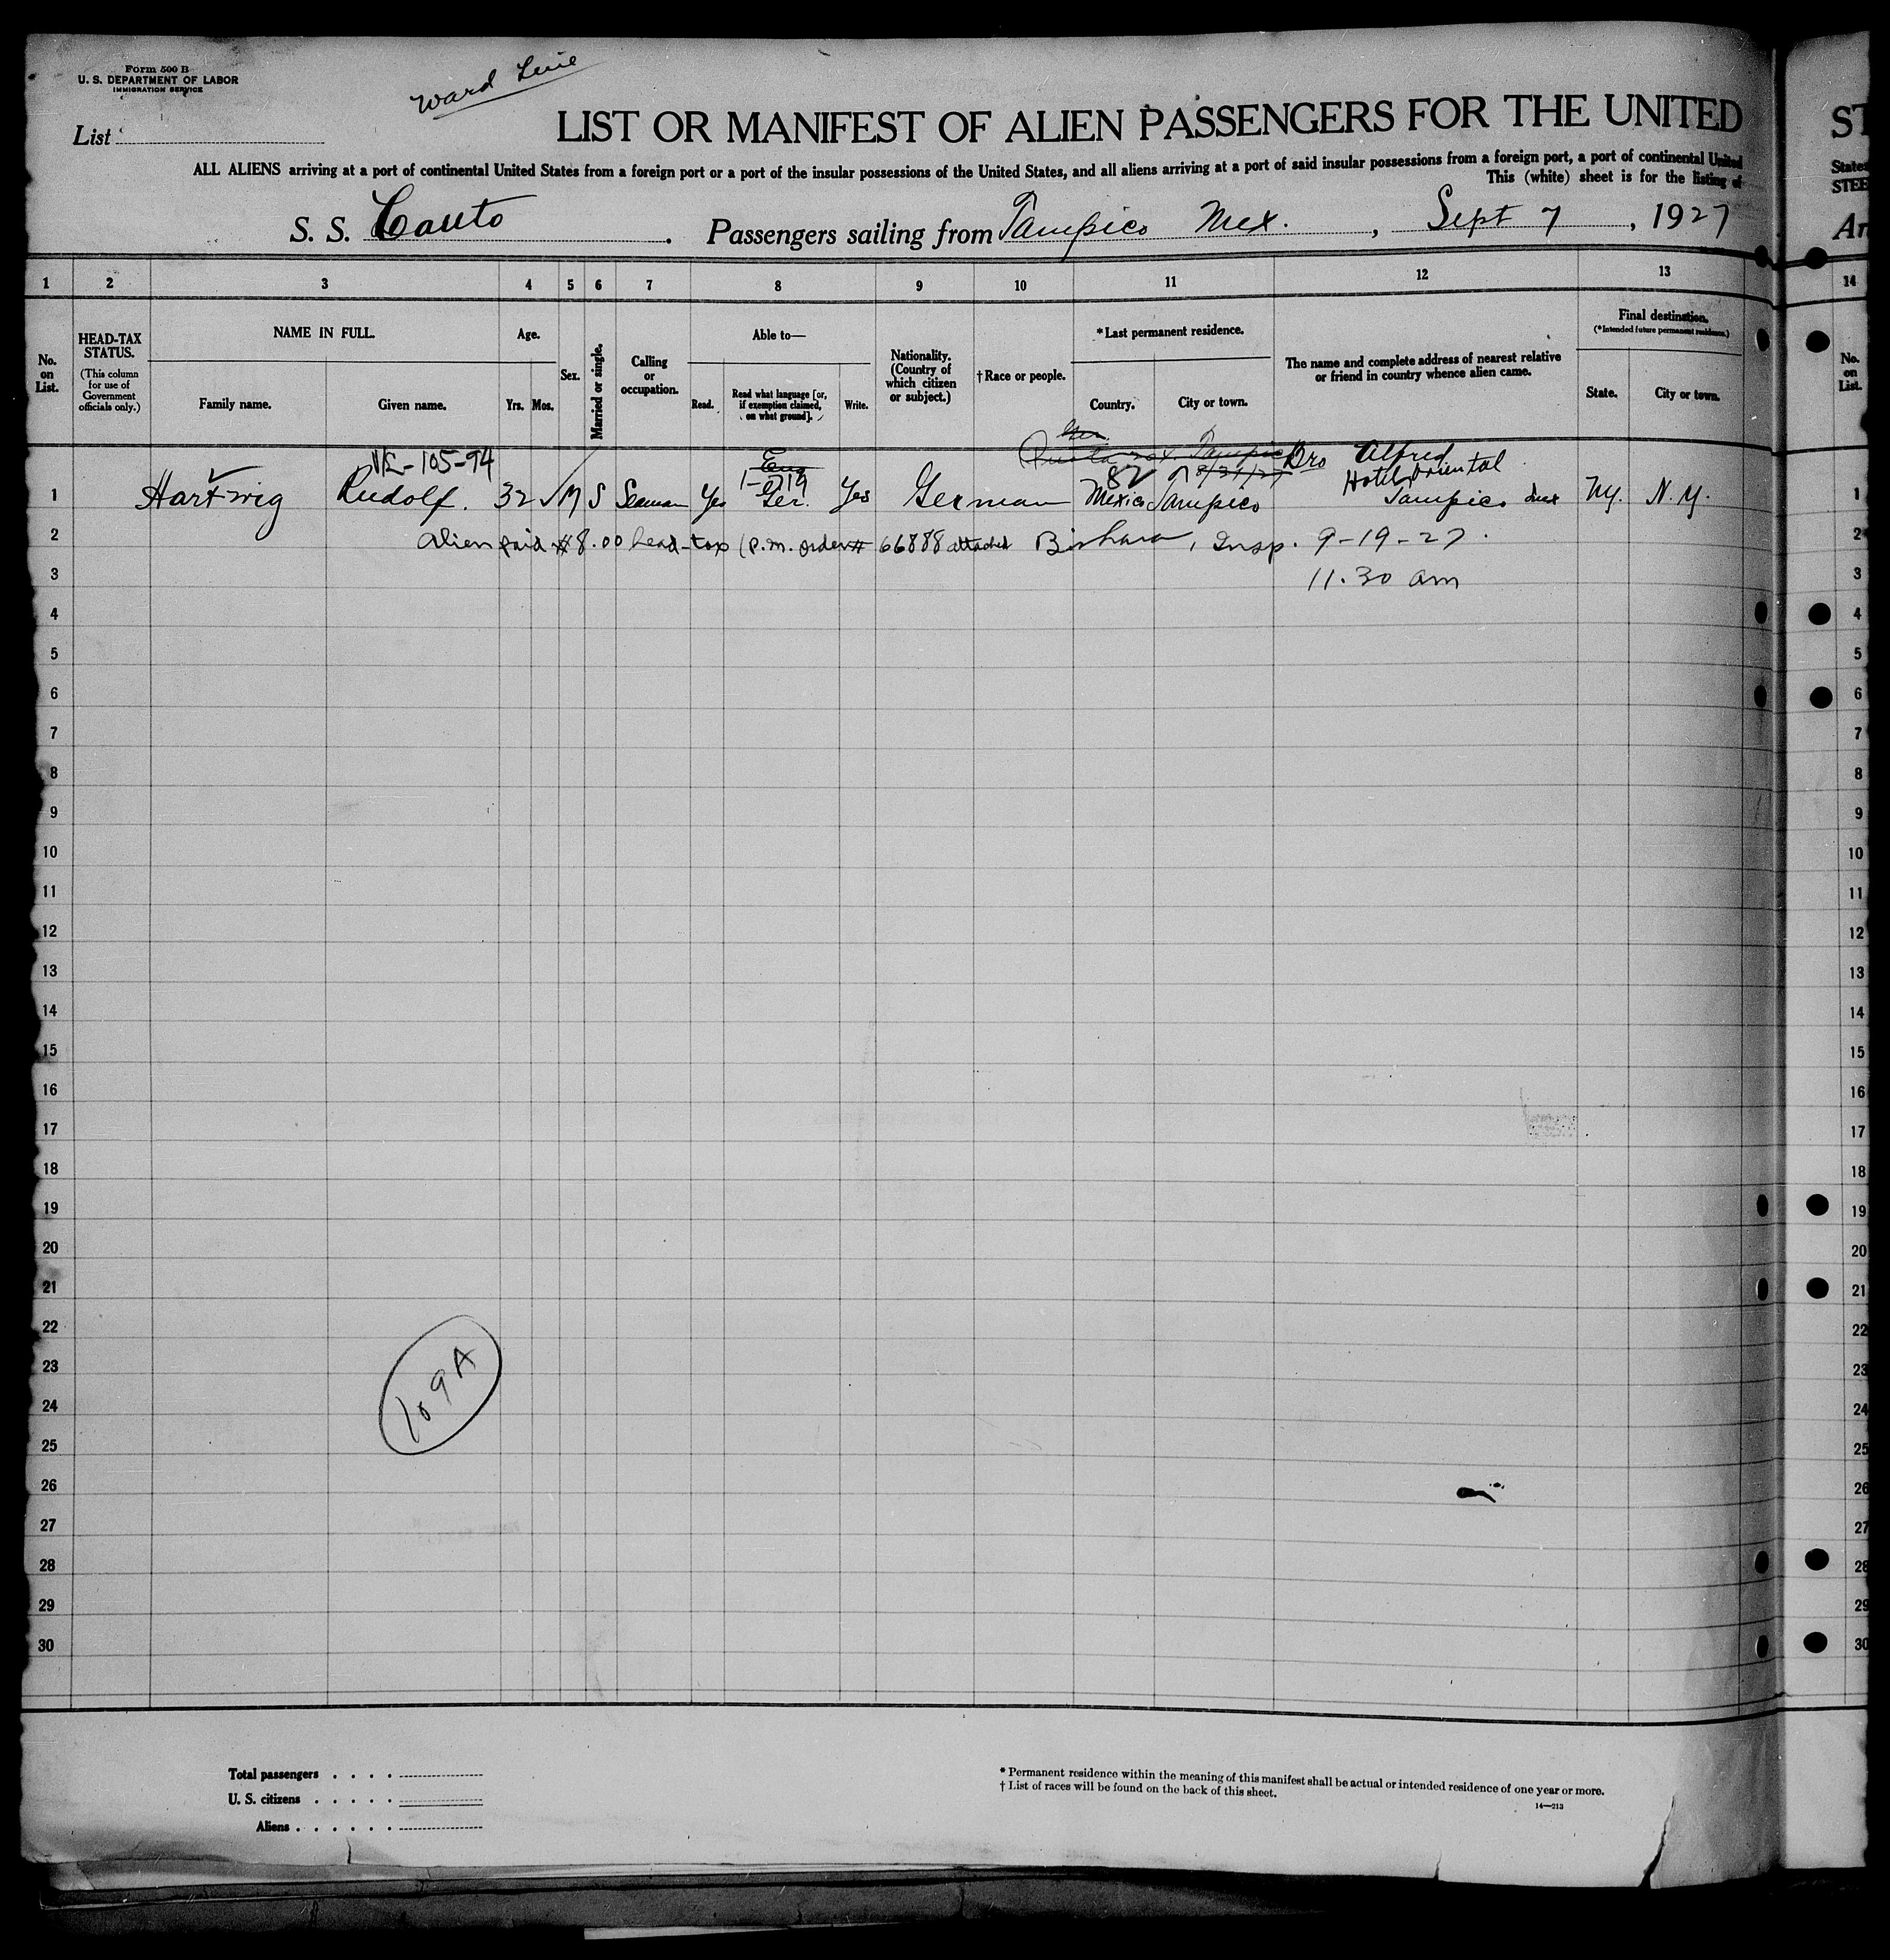 Form 500 B
U. S. DEPARTMENT OF LABOR
IMMIGRATION SERVICE
Ward Line
List
LIST OR MANIFEST OF ALIEN PASSENGERS FOR THE UNITED
ALL ALIENS arriving at a port of continental United States from a foreign port or a port of the insular possessions of the United States, and all aliens arriving at a port of said insular possessions from a foreign port, a port of continental United
This (white) sheet is for the listing of
S. S. Cauto. Passengers sailing from Tampico Mex., Sept 7, 1927
1 2 3 4 5 6 7 8 9 10 11 12 13
No. on List.
HEAD-TAX STATUS.
(This column for use of Government officials only.)
NAME IN FULL.
Family name. Given name.
Age.
Yrs. Mos.
Sex.
Married or single.
Calling or occupation.
Able to—
Read. Read what language [or, if exemption claimed, on what ground]. Write.
Nationality. (Country of which citizen or subject.)
†Race or people.
*Last permanent residence.
Country. City or town.
The name and complete address of nearest relative or friend in country whence alien came.
Final destination.
(*Intended future permanent residence.)
State. City or town.
Ger
105-94 Eng Tampico 8/31/27 Bro Alfred
82 Hotel Oriental
1 Hartwig Rudolf. 32 M S Seaman Yes Ger. Yes German Mexico Tampico Tampico Mex NY. N.Y. 1
2 Alien paid $8.00 head-tax (P.M. order # 66888 attached Insp. 9-19-27. 2
3 11.30 am 3
4 4
5 5
6 6
7 7
8 8
9 9
10 10
11 11
12 12
13 13
14 14
15 15
16 16
17 17
18 18
19 19
20 20
21 21
22 22
23 23
24 24
25 25
26 26
27 27
28 28
29 29
30 30
109A
Total passengers
U. S. citizens
Aliens
* Permanent residence within the meaning of this manifest shall be actual or intended residence of one year or more.
† List of races will be found on the back of this sheet.
14—213
ST
States
STEE
Ar
14
No. on List.